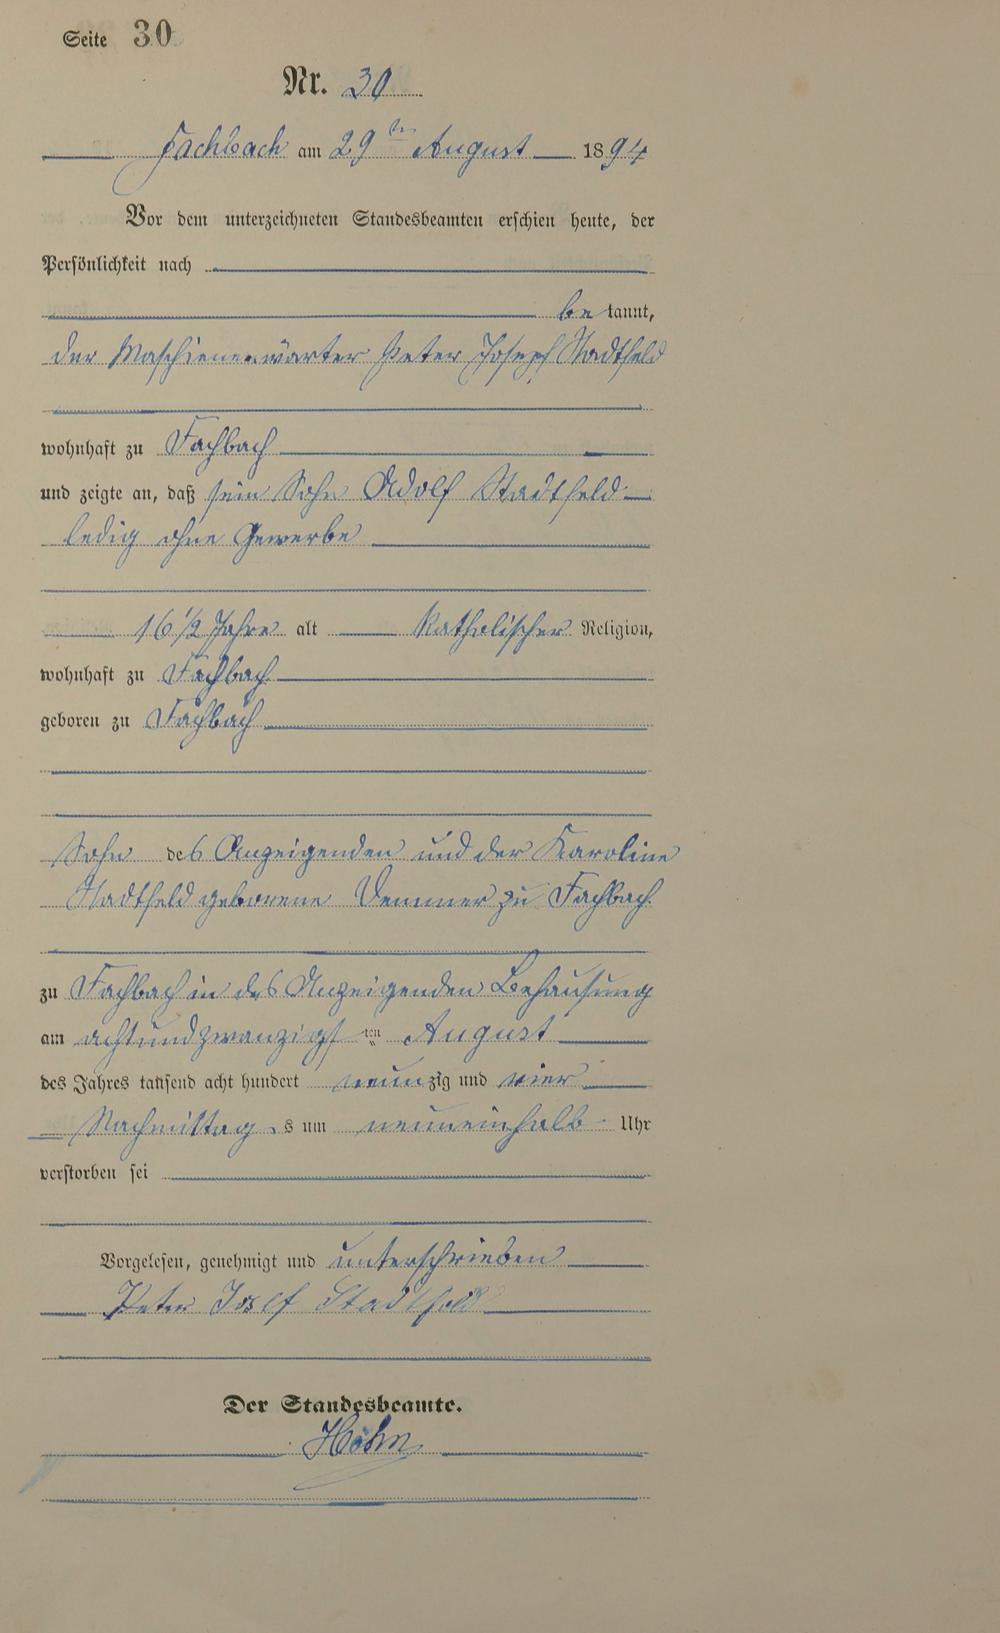 Seite 30
Nr. 30
Fachbach am 29ten August 1894
Vor dem unterzeichneten Standesbeamten erschien heute, der
Persönlichkeit nach
be kannt,
der Maschienenwärter Peter Joseph Stadtfeld
wohnhaft zu Fachbach
und zeigte an, daß sein Sohn Adolf Stadtfeld
ledig ohne Gewerbe
16 1/2 Jahre alt Katholischer Religion,
wohnhaft zu Fachbach
geboren zu Fachbach
Sohn des Anzeigenden und der Karoline
Stadtfeld geborene zu Fachbach
zu Fachbach in des Anzeigenden Behausung
am achtundzwanzigsten August
des Jahres tausend acht hundert neunzig und vier
Nachmittags um neuneinhalb Uhr
verstorben sei
Vorgelesen, genehmigt und unterschrieben
Peter Josef Stadtfeld
Der Standesbeamte.
Höhn